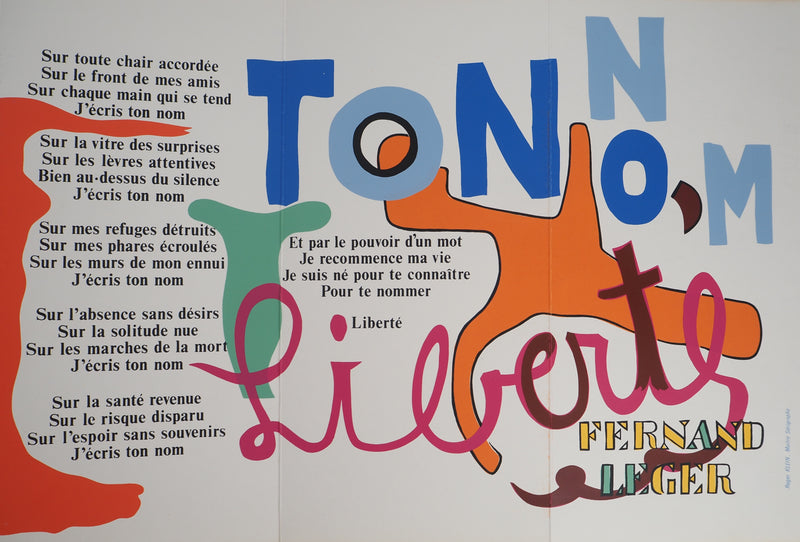 Sur toute chair accordée
Sur le front de mes amis
Sur chaque main qui se tend
J'écris ton nom
Sur la vitre des surprises
Sur les lèvres attentives
Bien au-dessus du silence
J'écris ton nom
Sur mes refuges détruits
Sur mes phares écroulés
Sur les murs de mon ennui
J'écris ton nom
Sur l'absence sans désirs
Sur la solitude nue
Sur les marches de la mort
J'écris ton nom
Sur la santé revenue
Sur le risque disparu
Sur l'espoir sans souvenirs
J'écris ton nom
TON NOM
Et par le pouvoir d'un mot
Je recommence ma vie
Je suis né pour te connaître
Pour te nommer
Liberté
Liberté
FERNAND
LEGER